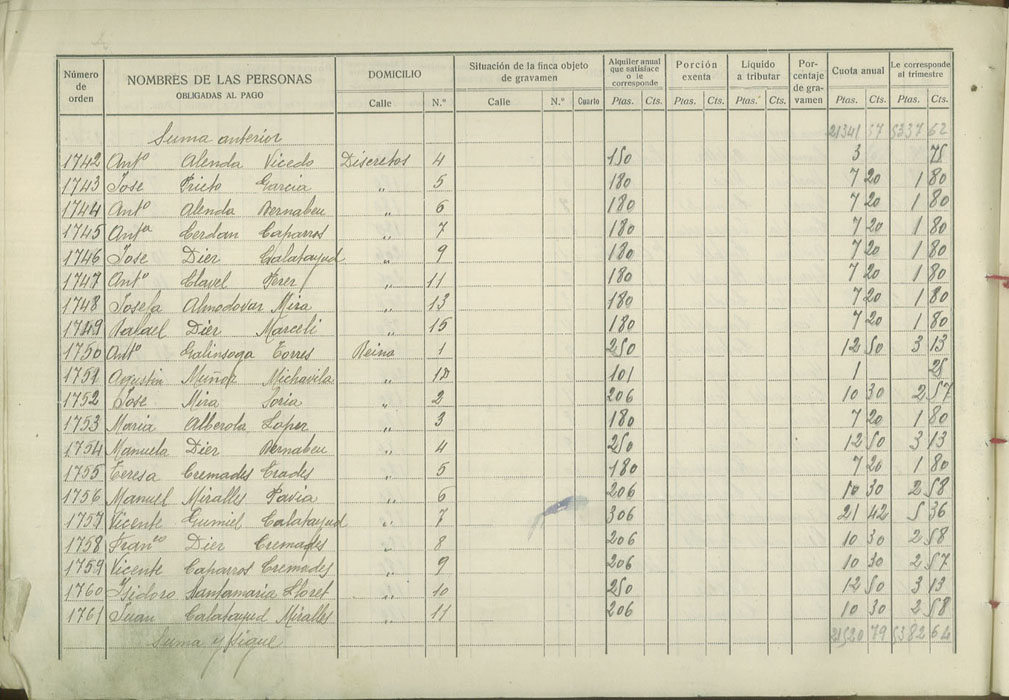 Número de orden | NOMBRES DE LAS PERSONAS OBLIGADAS AL PAGO | DOMICILIO | Situación de la finca objeto de gravamen | Alquiler anual que satisface o le corresponde | Porción exenta | Líquido a tributar | Porcentaje de gravamen | Cuota anual | Le corresponde al trimestre
Calle | N.º | Calle | N.º | Cuarto | Ptas. | Cts. | Ptas. | Cts. | Ptas. | Cts. | Ptas. | Cts. | Ptas. | Cts.
Suma anterior 21341 57 5337 62
1742 Antº Alenda Vicedo Discretos 4 150 3 75
1743 Jose Prieto Garcia " 5 180 7 20 1 80
1744 Antº Alenda Bernabeu " 6 180 7 20 1 80
1745 Antª Cerdan Caparros " 7 180 7 20 1 80
1746 Jose Dier Calatayud " 9 180 7 20 1 80
1747 Antº Clavel Perer " 11 180 7 20 1 80
1748 Josefa Almodovar Mira " 13 180 7 20 1 80
1749 Rafael Dier Marceli " 15 180 7 20 1 80
1750 Antº Galinsoga Torres Reina 1 250 12 50 3 13
1751 Agustin Muñor Michavila " 101 1 25
1752 Jose Mira Soria " 2 206 10 30 2 57
1753 Maria Alberola Loper " 3 180 7 20 1 80
1754 Manuela Dier Bernabeu " 4 250 12 50 3 13
1755 Teresa Cremades Erades " 5 180 7 20 1 80
1756 Manuel Miralles Pavia " 6 206 10 30 2 58
1757 Vicente Gumiel Calatayud " 7 306 21 42 5 36
1758 Franco Dier Cremades " 8 206 10 30 2 58
1759 Vicente Caparros Cremades " 9 206 10 30 2 57
1760 Isidoro Santamaria Lloret " 10 250 12 50 3 13
1761 Juan Calatayud Miralles " 11 206 10 30 2 58
Suma y sigue 21520 79 5382 64